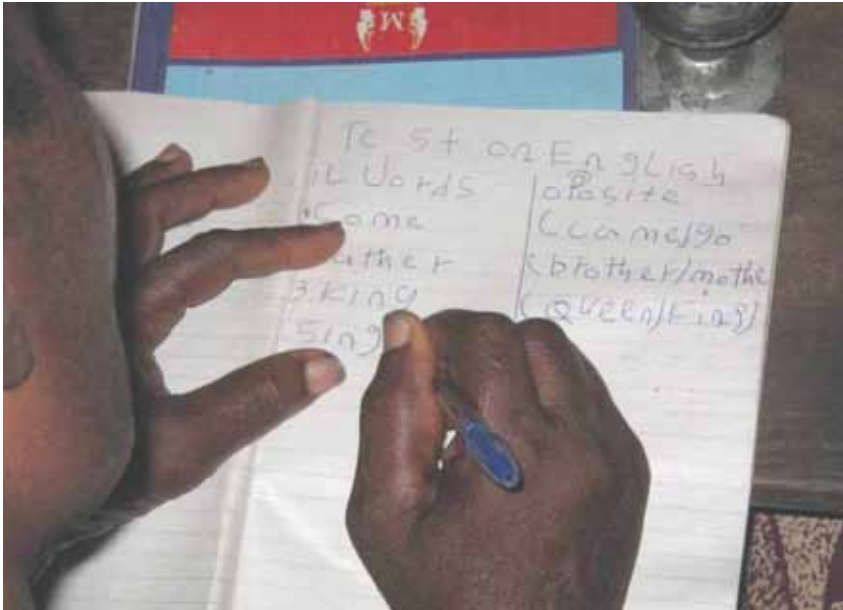 M
Test on English
Words opasite
Come (came/go
ather (brother/mothe
3. King (Queen/King)
Sing